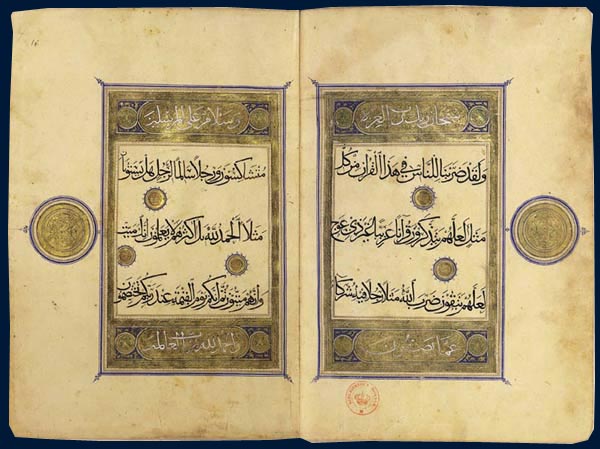 سبحان ربك رب العزة
ولقد ضربنا للناس في هذا القرآن من كل
مثل لعلهم يتذكرون قرآنا عربيا غير ذي عوج
لعلهم يتقون ضرب الله مثلا رجلا فيه شركاء
عما يصفون
وسلام على المرسلين
متشاكسون ورجلا سالما لرجل هل يستويان
مثلا الحمد لله بل أكثرهم لا يعلمون إنك ميت
وإنهم ميتون ثم إنكم يوم القيمة عند ربكم تختصمون
والحمد لله رب العالمين